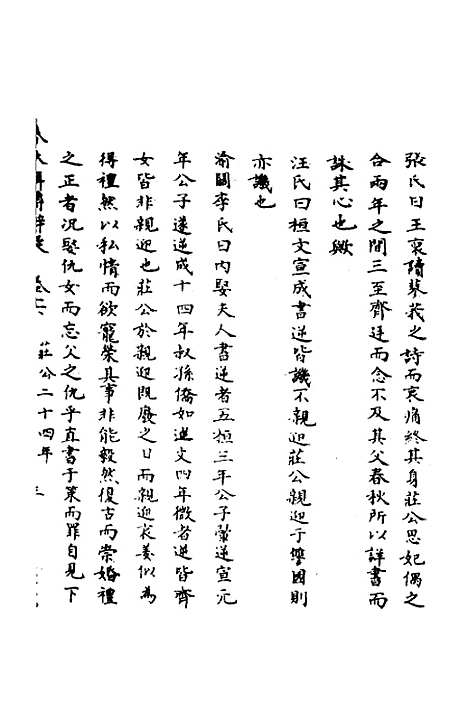 張氏曰王裒隋蓼莪之詩而哀痛終其身莊公思妃偶之
合兩年之間三至齊廷而念不及其父春秋所以詳書而
誅其心也歟
汪氏曰桓文宣成書逆皆譏不親迎莊公親迎于讐國則
亦譏也
渝關李氏曰内娶夫人書逆者五桓三年公子翬逆宣元
年公子遂逆成十四年叔孫僑如逆文四年微者逆皆齊
女皆非親迎也莊公於親迎既廢之日而親迎哀姜似為
得禮然以私情而欲寵榮其事非能毅然復古而崇婚禮
之正者況娶仇女而忘父之仇乎直書于策而罪自見下
莊公二十四年 三